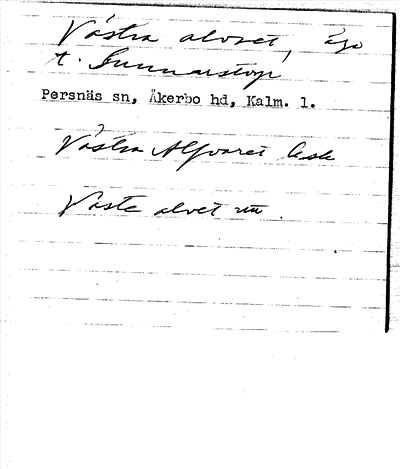 Västra alvret, äga
t. Gunnarstorp
Persnäs sn, Åkerbo hd, Kalm. l.
Västra Alfvaret
Väste alvet